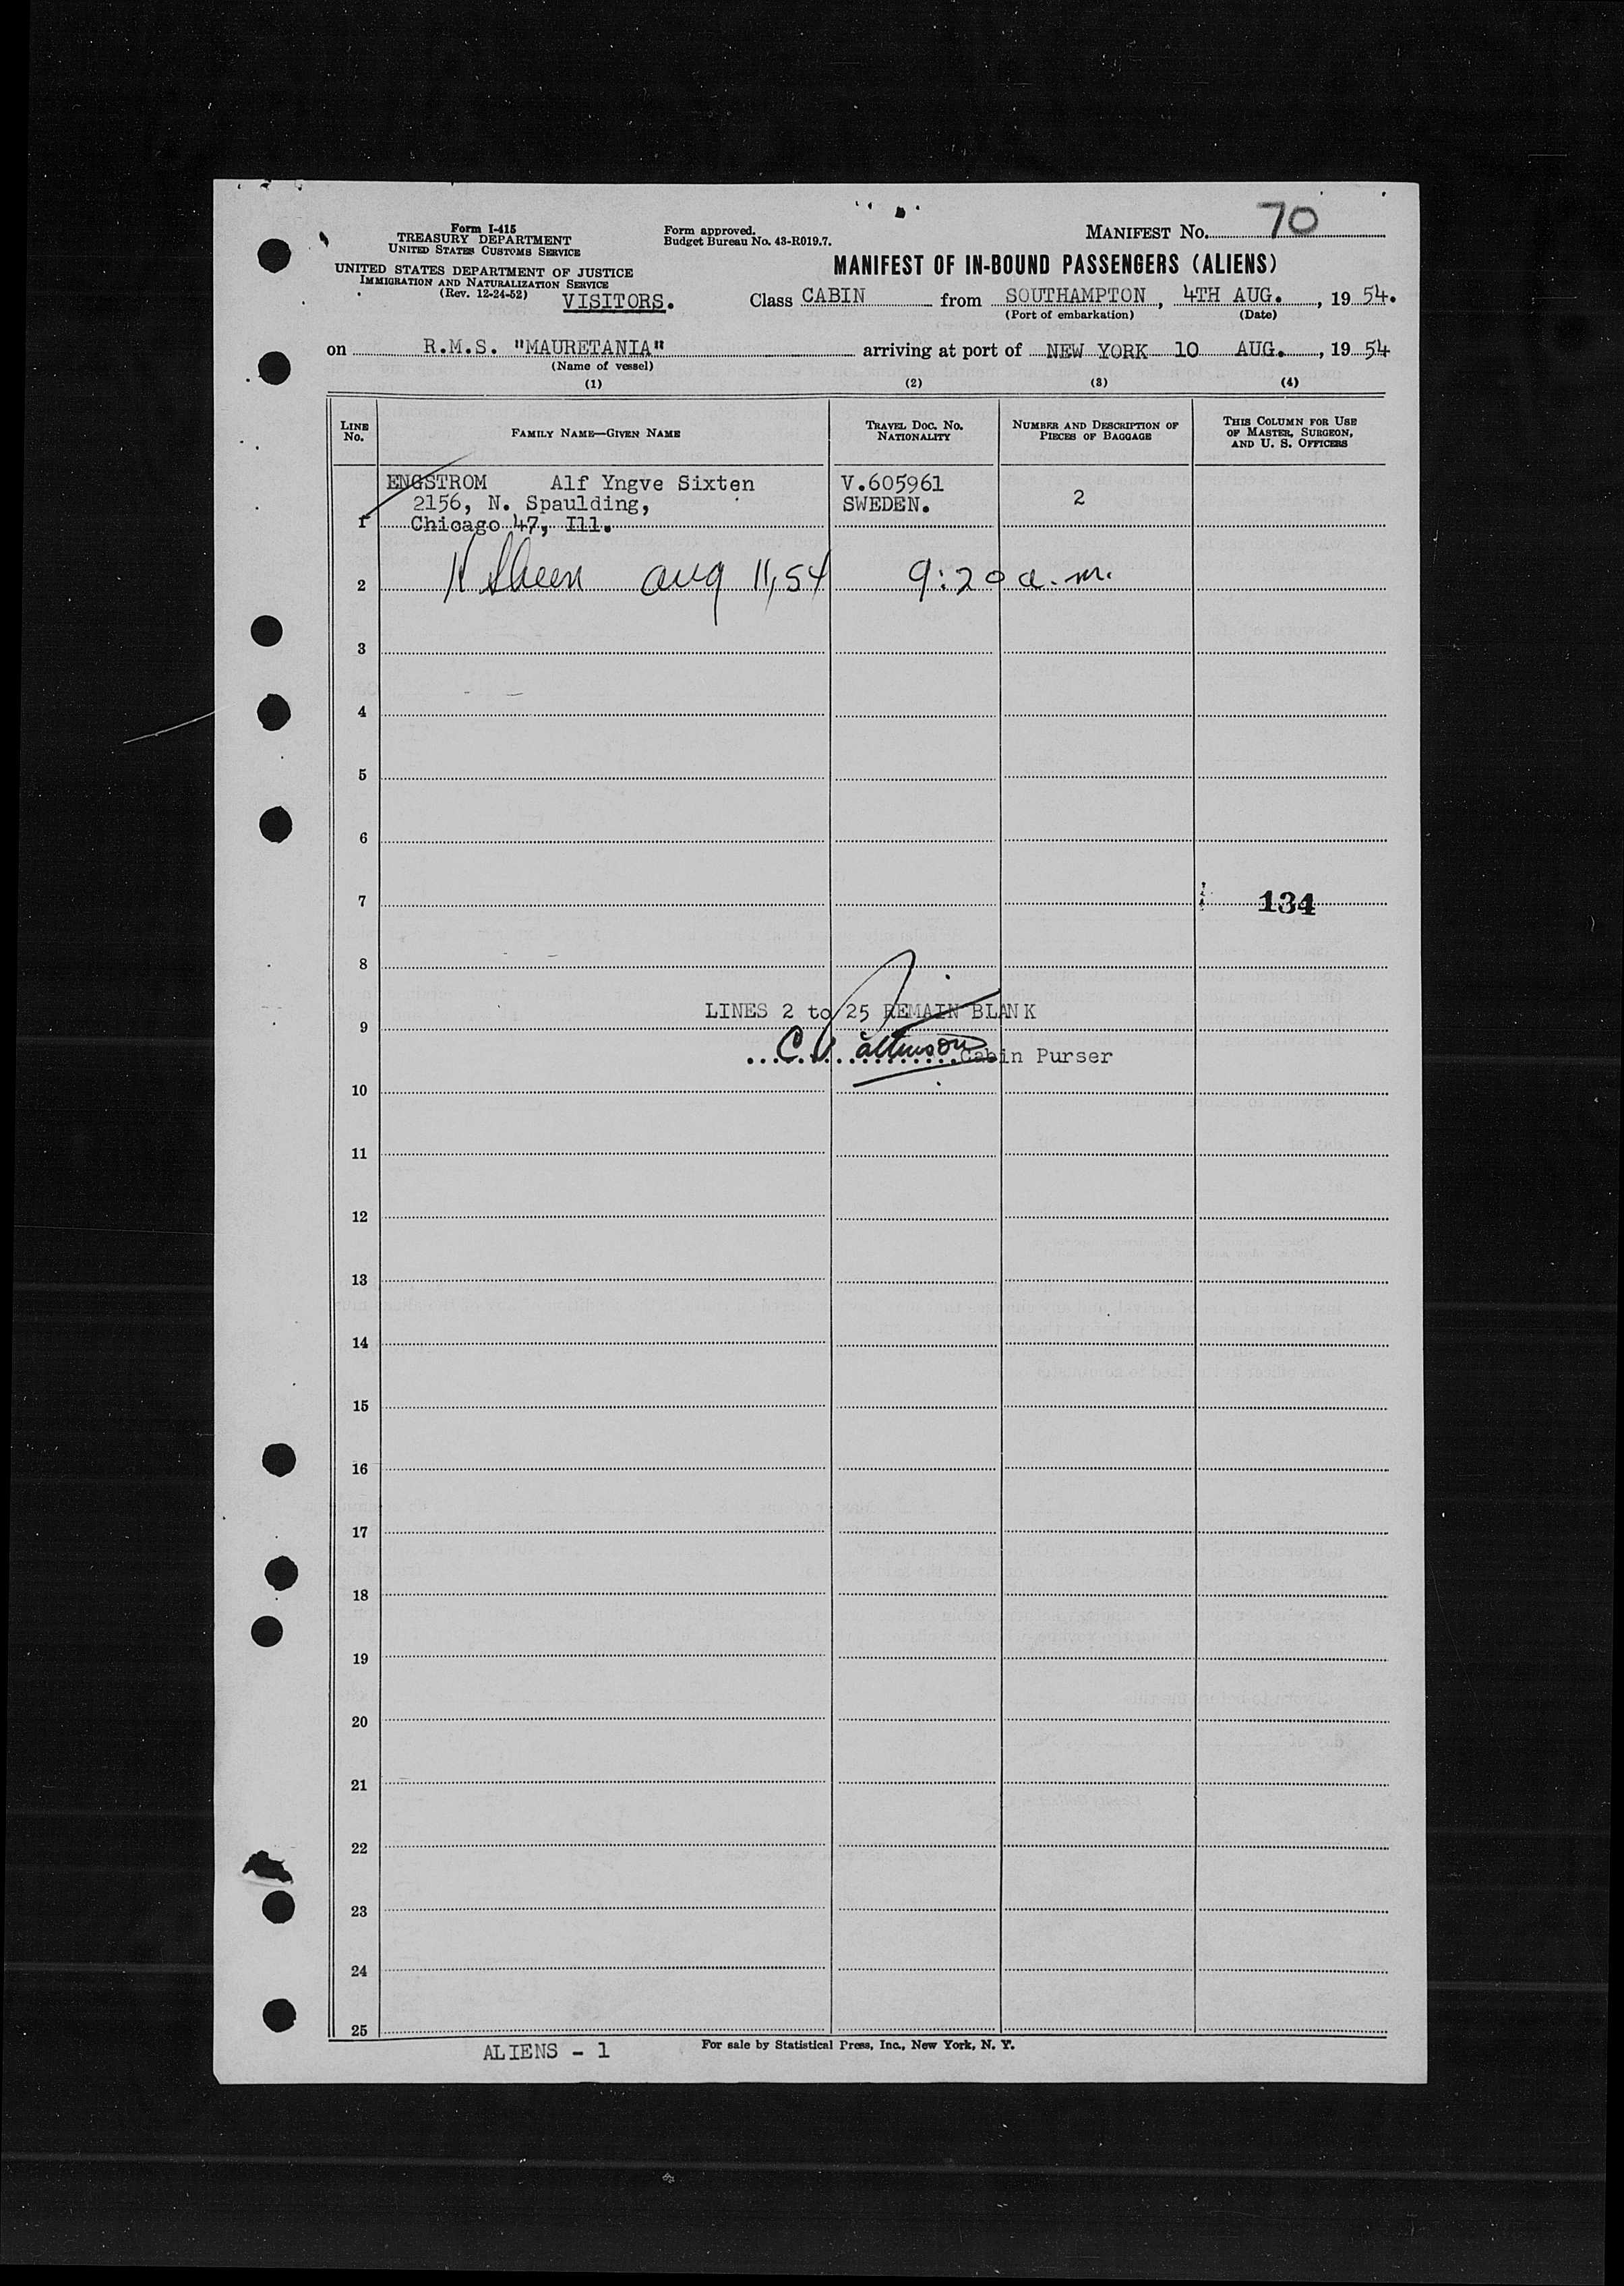 Form I-415
TREASURY DEPARTMENT
UNITED STATES CUSTOMS SERVICE
UNITED STATES DEPARTMENT OF JUSTICE
IMMIGRATION AND NATURALIZATION SERVICE
(Rev. 12-24-52)
VISITORS.
Form approved.
Budget Bureau No. 43-R019.7.
MANIFEST No. 70
MANIFEST OF IN-BOUND PASSENGERS (ALIENS)
Class CABIN from SOUTHAMPTON, 4TH AUG., 19 54.
(Port of embarkation) (Date)
on R.M.S. "MAURETANIA" arriving at port of NEW YORK 10 AUG., 19 54
(Name of vessel)
(1) (2) (3) (4)
LINE No. FAMILY NAME—GIVEN NAME TRAVEL DOC. No. NATIONALITY NUMBER AND DESCRIPTION OF PIECES OF BAGGAGE THIS COLUMN FOR USE OF MASTER, SURGEON, AND U. S. OFFICERS
ENGSTROM Alf Yngve Sixten V.605961
2156, N. Spaulding, SWEDEN. 2
1 Chicago 47, Ill.
2 aug 11, 54 9:20 a.m.
3
4
5
6
7 134
8
LINES 2 to 25 REMAIN BLANK
9
Cabin Purser
10
11
12
13
14
15
16
17
18
19
20
21
22
23
24
25
ALIENS - 1 For sale by Statistical Press, Inc., New York, N. Y.